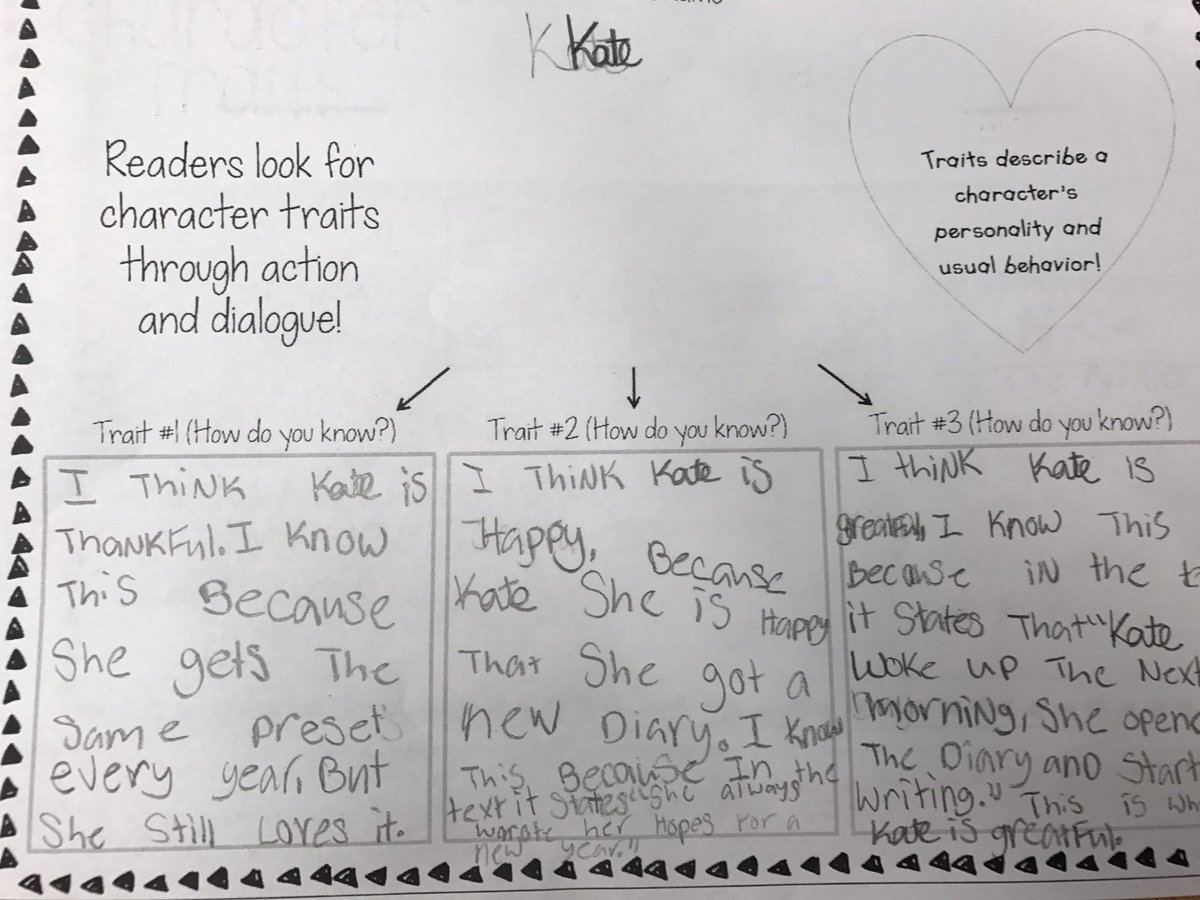 Kate
Readers look for
character traits
through action
and dialogue!
Traits describe a
character's
personality and
usual behavior!
Trait #1 (How do you know?)
I THiNK Kate is
THaNKFul. I KNow
THiS Because
She gets The
Same preset's
every year, But
She Still Loves it.
Trait #2 (How do you know?)
I THiNK Kate is
Happy, Because
Kate She is Happy
That She got a
new Diary. I Know
This Because In the
text it States "She always
worote her Hopes For a
new year."
Trait #3 (How do you know?)
I thiNK Kate is
greatful, I Know This
Because iN the
it States That "Kate
Woke up The Next
morning, She opene
The Diary and Start
writing." This is
Kate is greatFul.